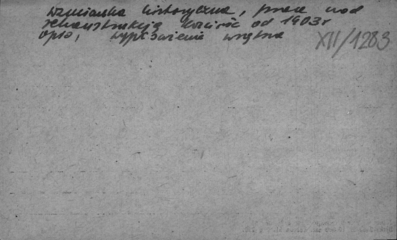 wzmianka historyczna, prace nad
rekonstrukcją kościoła od 1903 r
opis, wyposażenie wnętrza
XII/1283